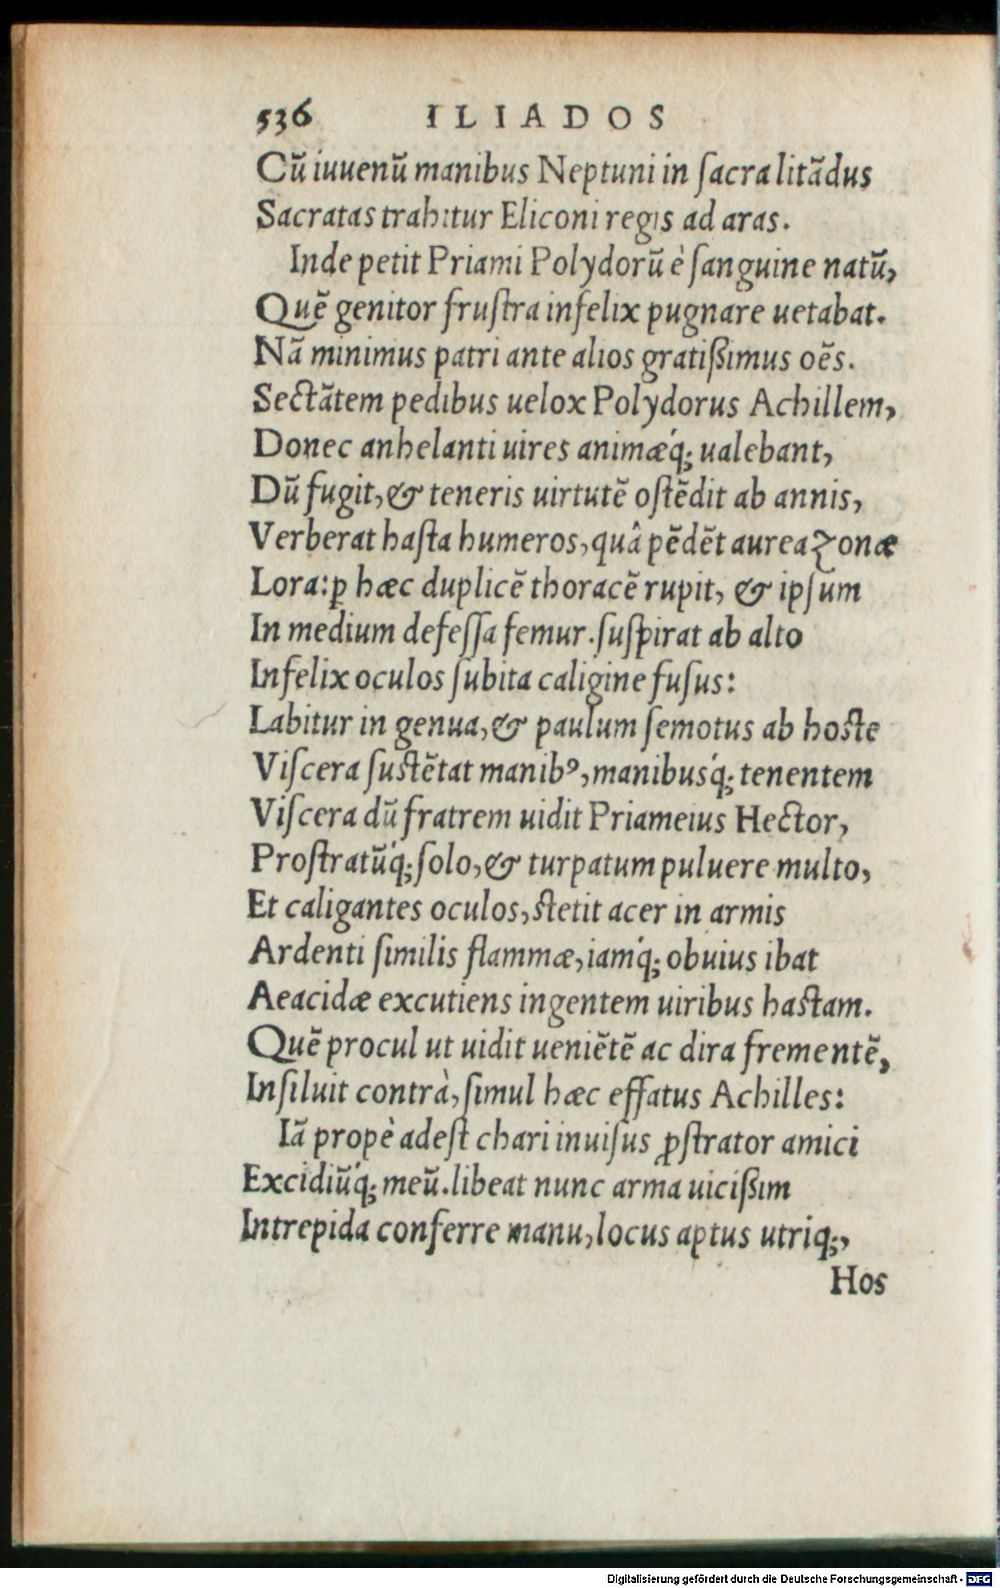 536 ILIADOS
Cū iuuenū manibus Neptuni in ſacra litādus
Sacratas trahitur Eliconi regis ad aras.
Inde petit Priami Polydorū è ſanguine natū,
Quē genitor fruſtra infelix pugnare uetabat.
Nā minimus patri ante alios gratißimus oēs.
Sectātem pedibus uelox Polydorus Achillem,
Donec anhelanti uires animæq́; ualebant,
Dū fugit, & teneris uirtutē oſtēdit ab annis,
Verberat haſta humeros, quâ pēdēt aurea zonæ
Lora: ꝑ hæc duplicē thoracē rupit, & ipſum
In medium defeſſa femur. ſuſpirat ab alto
Infelix oculos ſubita caligine fuſus:
Labitur in genua, & paulum ſemotus ab hoſte
Viſcera ſuſtētat manibꝰ, manibusq́; tenentem
Viſcera dū fratrem uidit Priameius Hector,
Proſtratūq́; ſolo, & turpatum puluere multo,
Et caligantes oculos, ſtetit acer in armis
Ardenti ſimilis flammæ, iamq́; obuius ibat
Aeacidæ excutiens ingentem uiribus haſtam.
Quē procul ut uidit ueniētē ac dira frementē,
Inſiluit contrà, ſimul hæc effatus Achilles:
Iā propè adeſt chari inuiſus ꝓſtrator amici
Excidiūq́; meū. libeat nunc arma uicißim
Intrepida conferre manu, locus aptus utriq;,
Hos
Digitalisierung gefördert durch die Deutsche Forschungsgemeinschaft - DFG